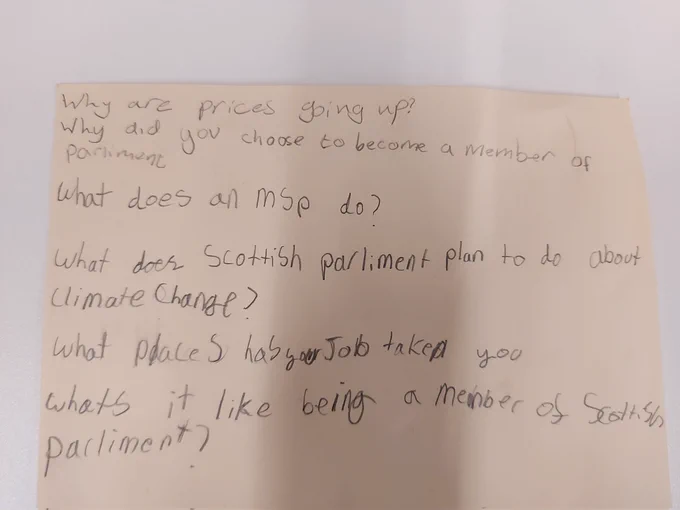 Why are prices going up?
Why did you choose to become a member of
parliment
What does an msp do?
What does Scottish parliment plan to do about
Climate Change?
What places has your Job taken you
whats it like being a member of Scottish
parliment?